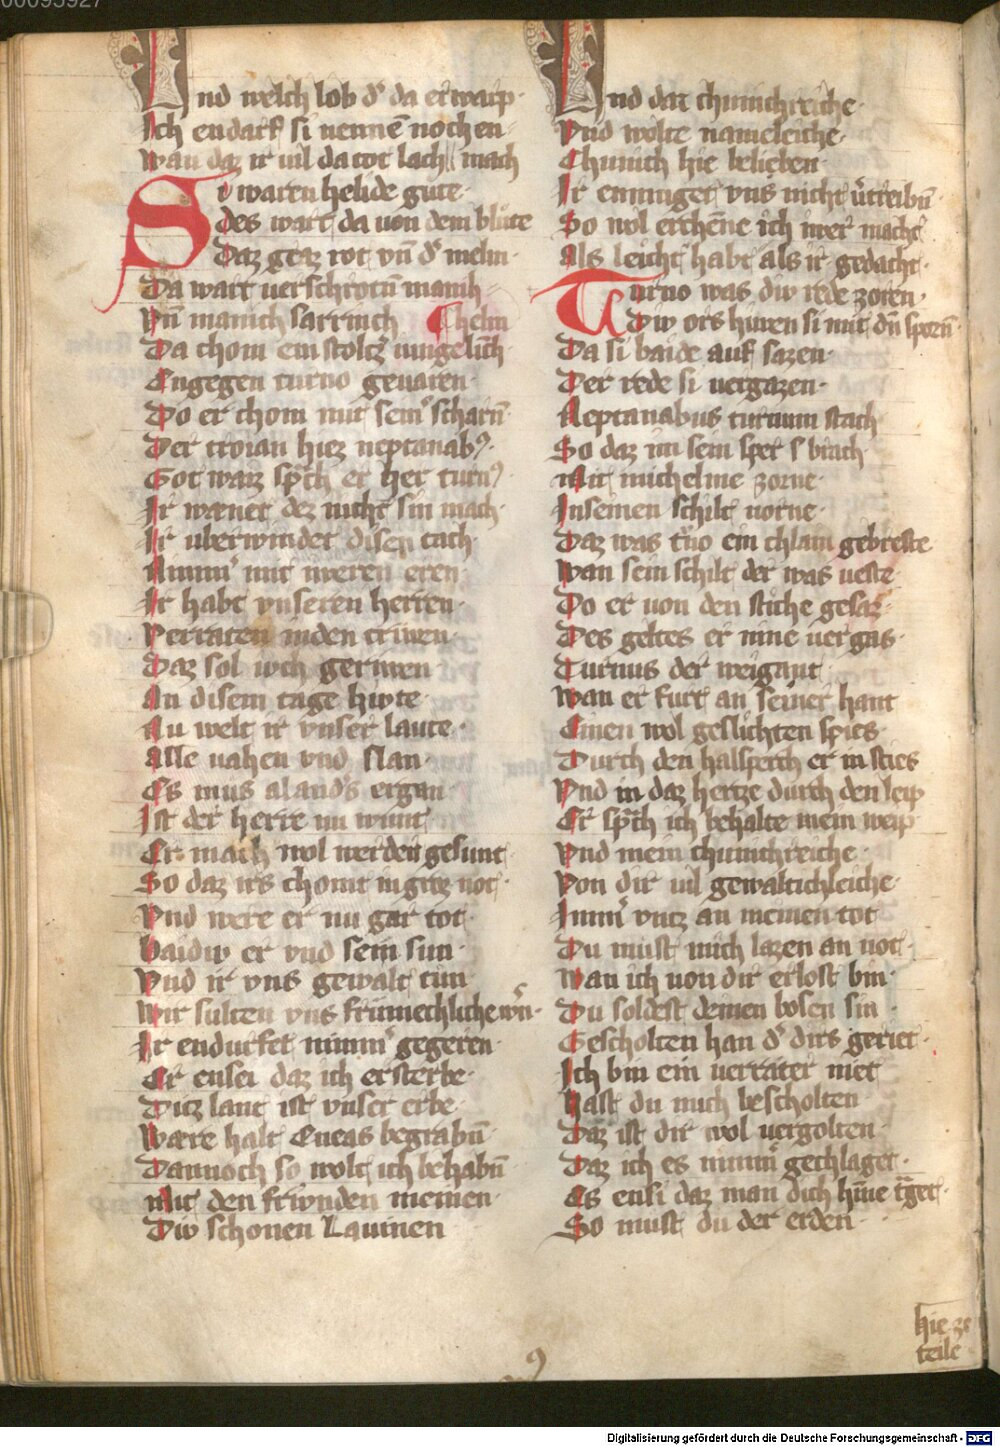 00095927
Und welch lob d͛ da erwarp·
Ich endarf si nennē noch en·
Wan daz ir vil da tot lach mach
Si waren helide gute·
des wart da von dem blůte
Daz graz rot vn̄ d͛ melm·
Da wart verschrotn̄ manih
Vn̄ manich sarrinch Chelm
Da chom ein stoltz iungelich
Engegen turno gevaren·
Do er chom mit sem͛ scharn̄·
Der troian hiez neptanab⁹·
Got waz spͣch er her turn⁹
Ir wænet dez nicht sin mach·
Ir uberwindet disen tach·
Nimm͛ mit iweren eren·
Ir habt vnseren herren·
Verraten inden triwen·
Daz sol iwch geriwen
An disem tage hiwte·
Nu welt ir vnser laute·
Alle vahen vnd slan·
Es mus al and͛s ergan·
Ist der herre nu wunt
Er mach wol werden gesunt
So daz irs chomt in groz not·
Vnd were er nu gar tot·
Baidiv er vnd sem sun·
Vnd ir vns gewalt tun
Wir sulten vns frumechliche wͤn·
Ir endurfet nimm͛ gegeren·
Er ensei daz ich ersterbe·
Ditz lant ist vnser erbe·
Wære halt Eneas begrabn̄·
Dannoch so wolt ich behabn̄
Mit den friwnden meinen·
Diw schonen Lauinen
Vnd daz chunichreiche·
Vnd wolte nameleiche·
Chunich hie beliben·
Ir enmuget vns nicht v͛treibn̄·
So wol erchēne ich iwer macht
Als leicht habt als ir gedacht·
Turno was diw rede zoren·
Diw ors huwen si mit dn̄ sporn̄·
Da si baide auf sazen·
Der rede si vergazen·
Neptanabus turnum stach
So daz im sem sper s brach·
Mit michelme zorne·
In seinen schilt vorne·
Daz was turno ein chlain gebreste
Wan sem schilt der was veste·
Do er von den stiche gesaz·
Des geltes er nine vergas·
Turnus der weigant·
Wan er furt an seiner hant
Einen wol geslichten spies·
Durch den halsperch er in sties
Vnd in daz hertze durch den leip
Er spͣch ich behalte mein weip·
Vnd mein chunichreiche·
Von dir vil gewaltichleiche·
Imm͛ vntz an meinen tot
Du must mich lazen an not·
Wan ich von dir erlost bin·
Du soldest deinen bosen sin·
Gescholten han d͛ dirs geriet·
Ich bin ein verrater niet
Hast du mich bescholten
Daz ist dir wol vergolten·
Daz ich es nimm͛ gechlaget·
Es ensi daz man dich hīne tͣget·
So must du der erden·
hie ze
teile
9
Digitalisierung gefördert durch die Deutsche Forschungsgemeinschaft - DFG